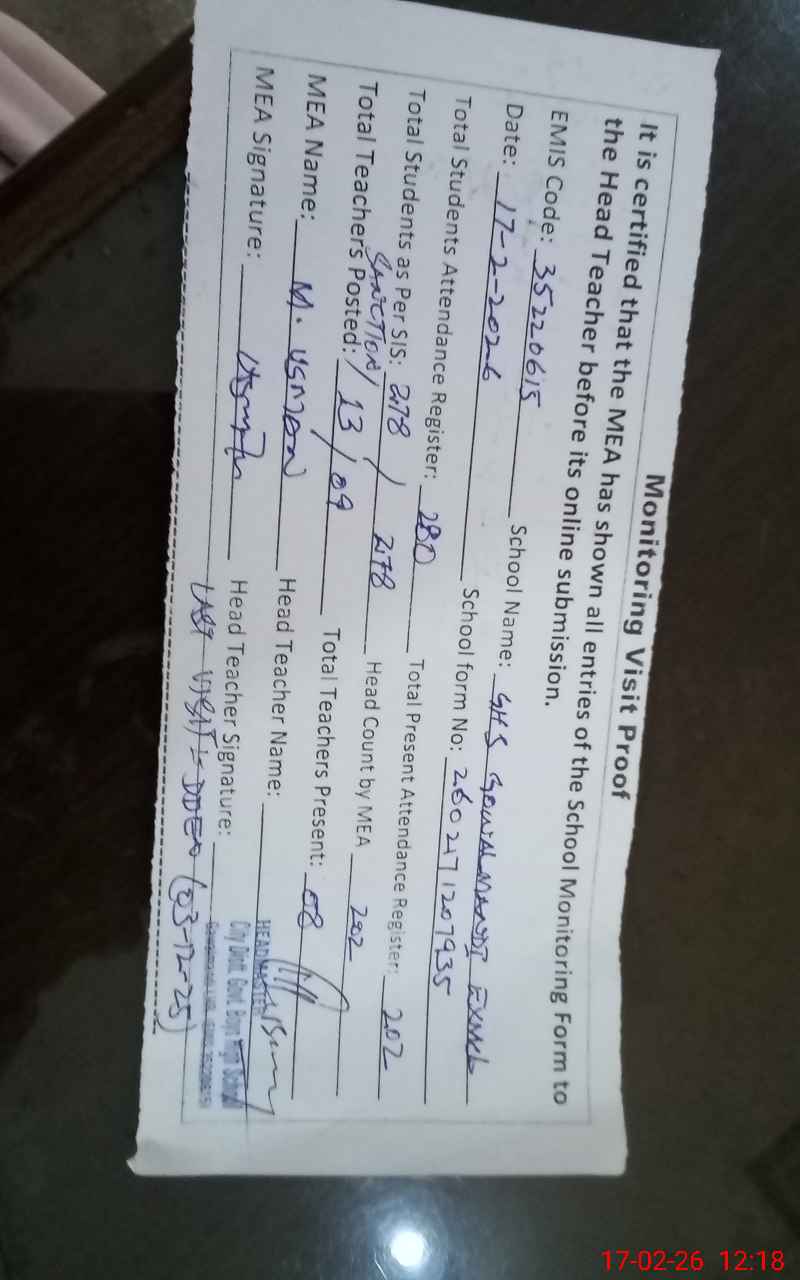 Monitoring Visit Proof
It is certified that the MEA has shown all entries of the School Monitoring Form to
the Head Teacher before its online submission.
EMIS Code: 35220615 School Name: GHS GOWALMANDI
Date: 17-2-2026 School form No:
Total Students Attendance Register: 280 Total Present Attendance Register: 202
Total Students as Per SIS: 278 / 278 Head Count by MEA 202
SANCTION/
Total Teachers Posted: 13 / 09 Total Teachers Present: 08
MEA Name: M. USMAN Head Teacher Name:
MEA Signature: Head Teacher Signature:
HEADMASTER
City Distt. Govt. Boys High School
LAST VISIT :- DDEO (03-12-25)
17-02-26 12:18